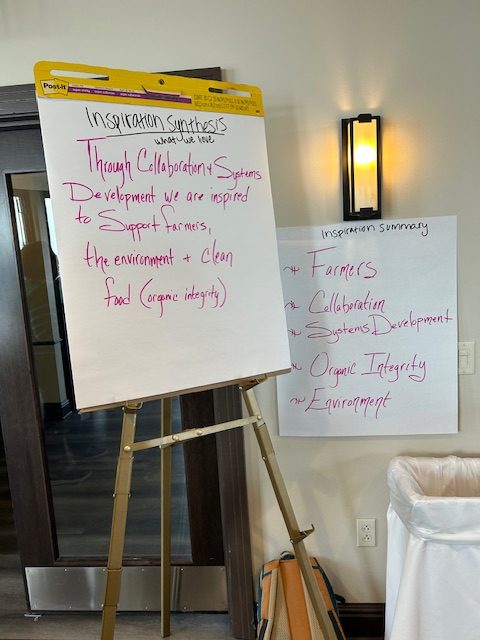 Post-it
Inspiration synthesis
what we love
Through Collaboration & Systems
Development we are inspired
to Support farmers,
the environment + clean
food (organic integrity)
Inspiration summary
* Farmers
* Collaboration
* Systems Development
* Organic Integrity
* Environment